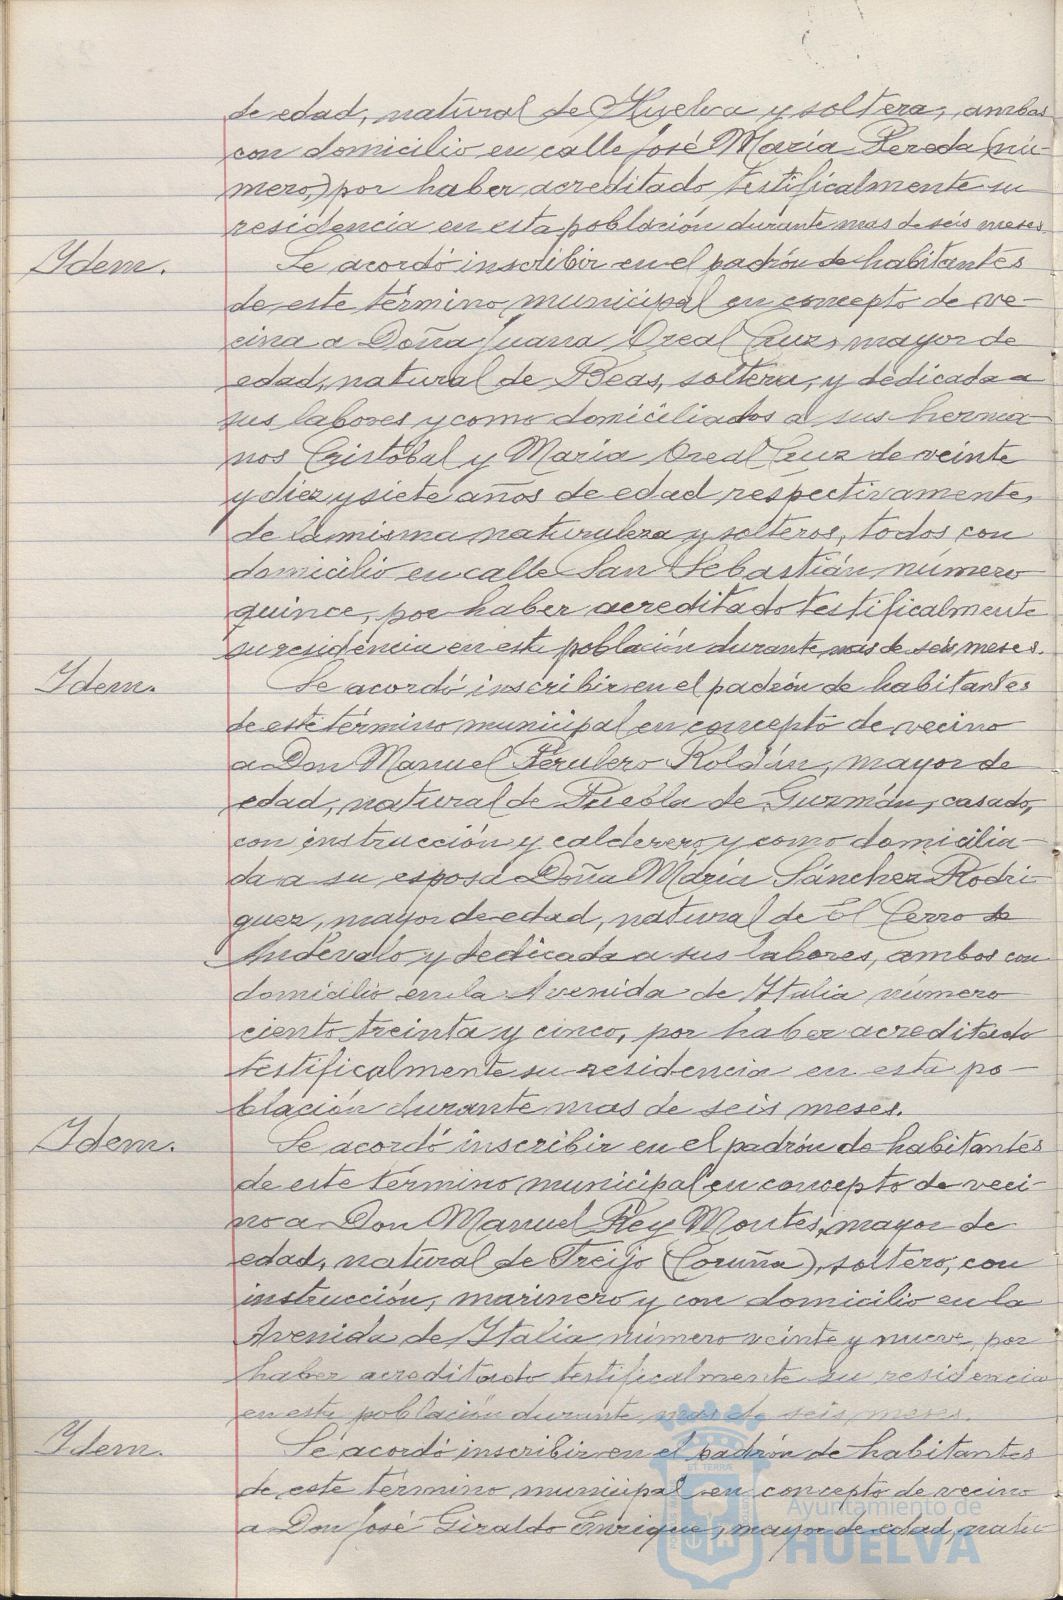 de edad, natural de Huelva y soltera, ambas
con domicilio en calle José María Pereda (nú-
mero,) por haber acreditado testificalmente su
residencia en esta población durante mas de seis meses.
Idem.
Se acordó inscribir en el padrón de habitantes
de este término municipal en concepto de ve-
cina a Doña Juana Oreal Cruz, mayor de
edad, natural de Beas, soltera, y dedicada a
sus labores y como domiciliados a sus herma
nos Cristóbal y María Oreal Cruz de veinte
y diez y siete años de edad respectivamente,
de la misma naturaleza y solteros, todos con
domicilio en calle San Sebastián número
quince, por haber acreditado testificalmente
su residencia en esta población durante mas de seis meses.
Idem.
Se acordó inscribir en el padrón de habitantes
de este término municipal en concepto de vecino
a Don Manuel Perulero Roldán, mayor de
edad, natural de Puebla de Guzmán, casado,
con instrucción y calderero y como domicilia-
da a su esposa Doña María Sánchez Rodri
guez, mayor de edad, natural de El Cerro de
Andévalo y dedicada a sus labores, ambos con
domicilio en la Avenida de Italia número
ciento treinta y cinco, por haber acreditado
testificalmente su residencia en esta po-
blación durante mas de seis meses.
Idem.
Se acordó inscribir en el padrón de habitantes
de este término municipal en concepto de veci-
no a Don Manuel Rey Montes, mayor de
edad, natural de Treijo (Coruña), soltero, con
instrucción, marinero y con domicilio en la
Avenida de Italia número veinte y nueve, por
haber acreditado testificalmente su residencia
en esta población durante mas de seis meses.
Idem.
Se acordó inscribir en el padrón de habitantes
de este término municipal en concepto de vecino
a Don José Giraldo Enrique, mayor de edad, natu
Ayuntamiento de
HUELVA